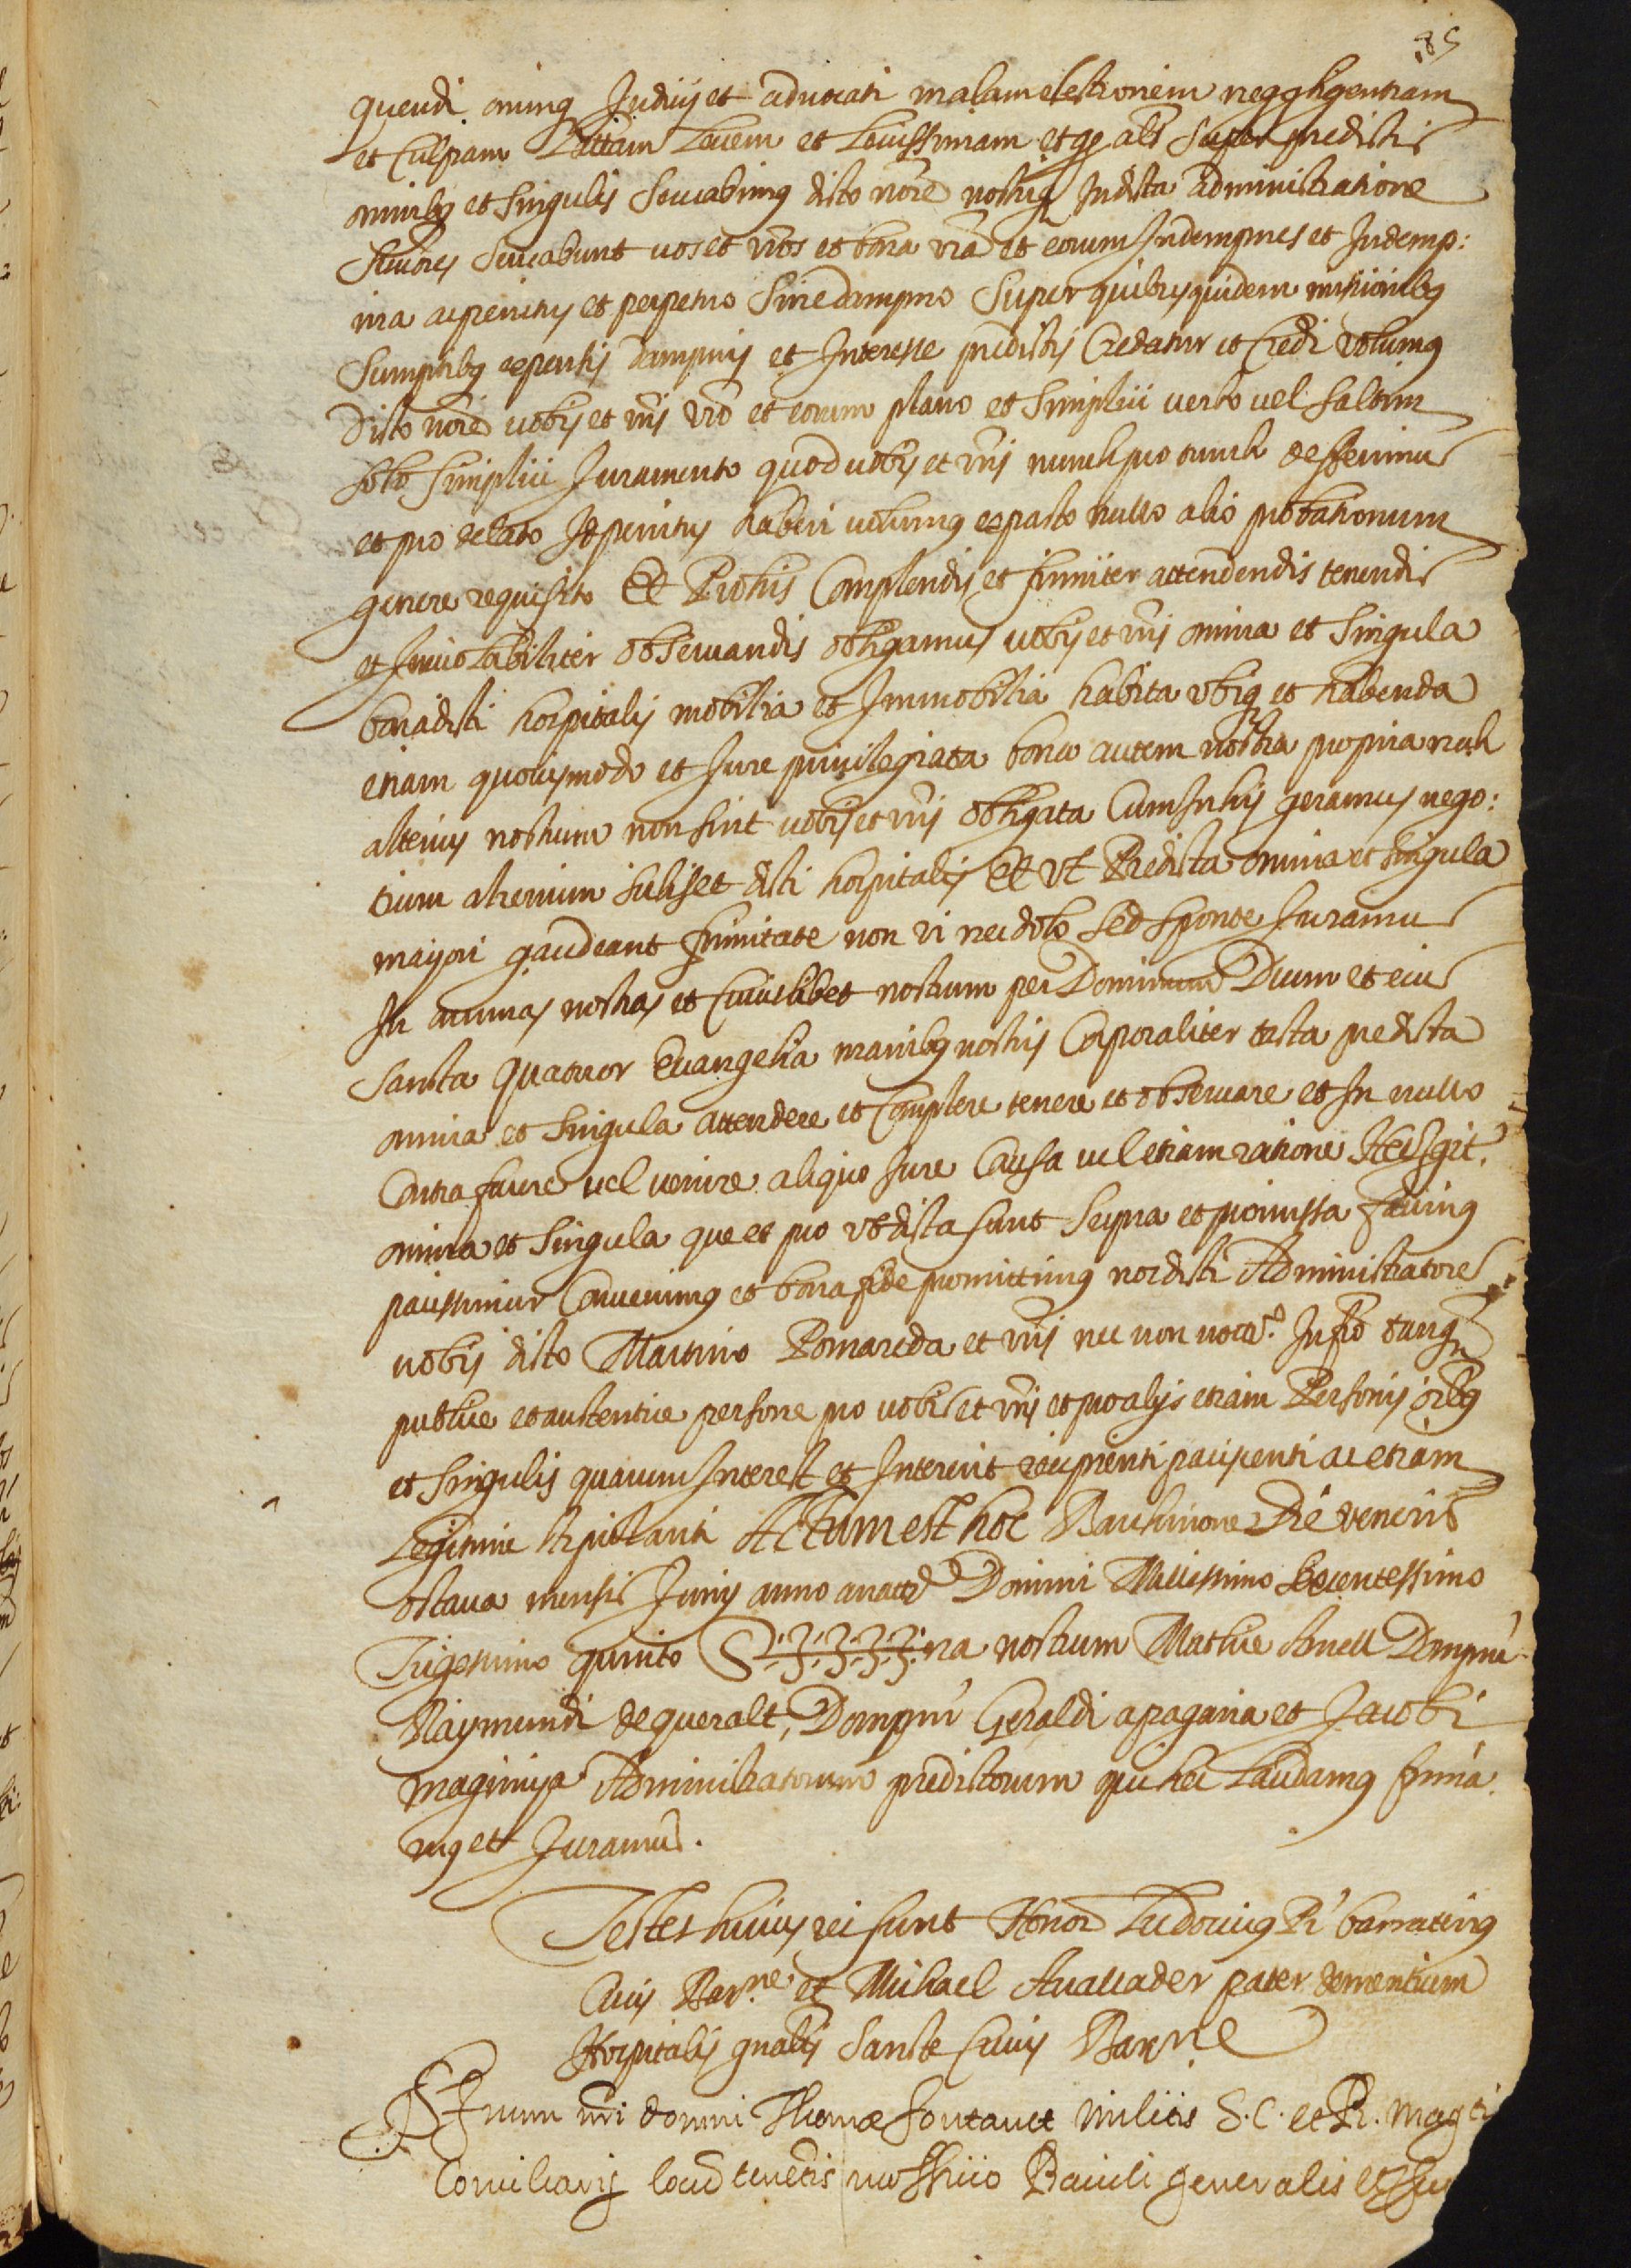 85
quendi oming Judicij et advocati malam electionem neggligentiam
et Culpam Lattam Levem et Levissimam et gñaliter Super predictis
omnibꝯ et Singulis Servabimꝯ dicto nõre nostriqꝫ In dicta administratione
Successores Servabunt vos et vr̃os et bona vr̃a et eorum Indempnes et Indemp:
nia ac penitus et perpetuo Sine dampno Super quibus quidem missionibꝯ
Sumptibꝯ expensis dampnis et Interesse predictis Credatur et Credi volumꝯ
Dicto nõre vobis et vr̃is vr̃o et eorum plano et Simplici verbo vel Saltim
Solo Simplici Juramento quod vobis et vr̃is nunch pro tunch defferimus
et pro delato Jd penitus haberi volumꝯ ex pacto nullo alio probationum
genere requisito Et Pro his Complendis et firmiter attendendis tenendis
et Inviolabiliter observandis obligamus vobis et vr̃is omnia et Singula
bona dicti hospitalis mobilia et Immobilia habita ubiqꝫ et habenda
etiam quovismodo et Jure privilegiata bona autem nostra propria nech
alterius nostrum non sint vobis et vr̃is obligata Cum In his geramus nego:
tium alienum Scilicet dicti hospitalis Et Vt Predicta omnia et Singula
mayori gaudeant firmitate non vi nec dolo Sed Sponte Juramus
In animas nostras et Cuiuslibet nostrum per Dominum Deum et eius
Sancta quatuor Evangelia manibꝯ nostris Corporaliter tacta predicta
omnia et Singula attendere et Complere tenere et observare et In nullo
Contra facere vel venire aliquo Jure Causa vel etiam ratione Hec Igit.
omnia et Singula que et pro vt dicta sunt Supra et promissa facimꝯ
paciscimur Convenimꝯ et bona fide promittimꝯ nos dicti Administratores
vobis dicto Martino Pomareda et vr̃is nec non notr̃. Infr̃o tanqꝫ
publice et autentice persone pro vobis et vr̃is et pro alijs etiam Personis õibꝯ
et Singulis quarum Interest et Intererit recipienti paciscenti ac etiam
Legitime stipulanti Actum est hoc Barchinone Die veneris
octava mensis Junij anno a natte Domini Millessimo Sexcentessimo
Trigessimo quinto S:3:3:3:3:na nostrum Mathie Amell Dompni
Raymundi de queralt, Dompni Geraldi apagaria et Jacobi
maginya Administratorum predictorum qui hec Laudamꝯ firma
mꝯ et Juramus.
Testes huius rei sunt Honor Ludovicꝯ Ri barratinꝯ
Civis Bar.ne et Michael Avallader pater dementium
Hospitalis gnalis Sancte Crucis Bar.ne
Signum mei domni Thomæ fontanet militis S.C. et R. Mag.tis
Conciliarij locũ tenẽtis in officio Baiuli generalis et